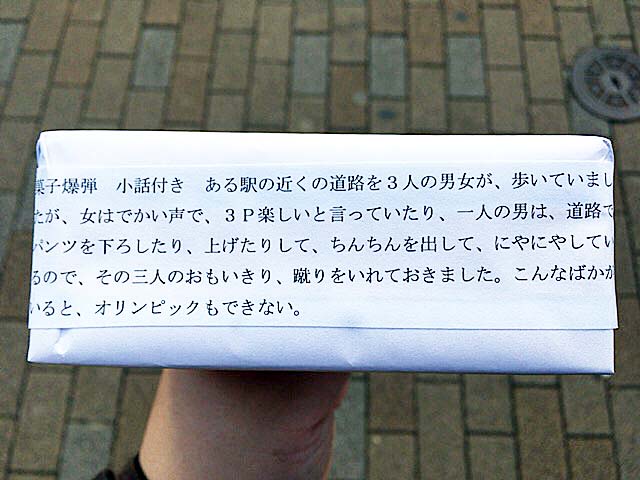 菓子爆弾　小話付き　ある駅の近くの道路を３人の男女が、歩いていまし
たが、女はでかい声で、３Ｐ楽しいと言っていたり、一人の男は、道路で
パンツを下ろしたり、上げたりして、ちんちんを出して、にやにやしてい
るので、その三人のおもいきり、蹴りをいれておきました。こんなばかが
いると、オリンピックもできない。